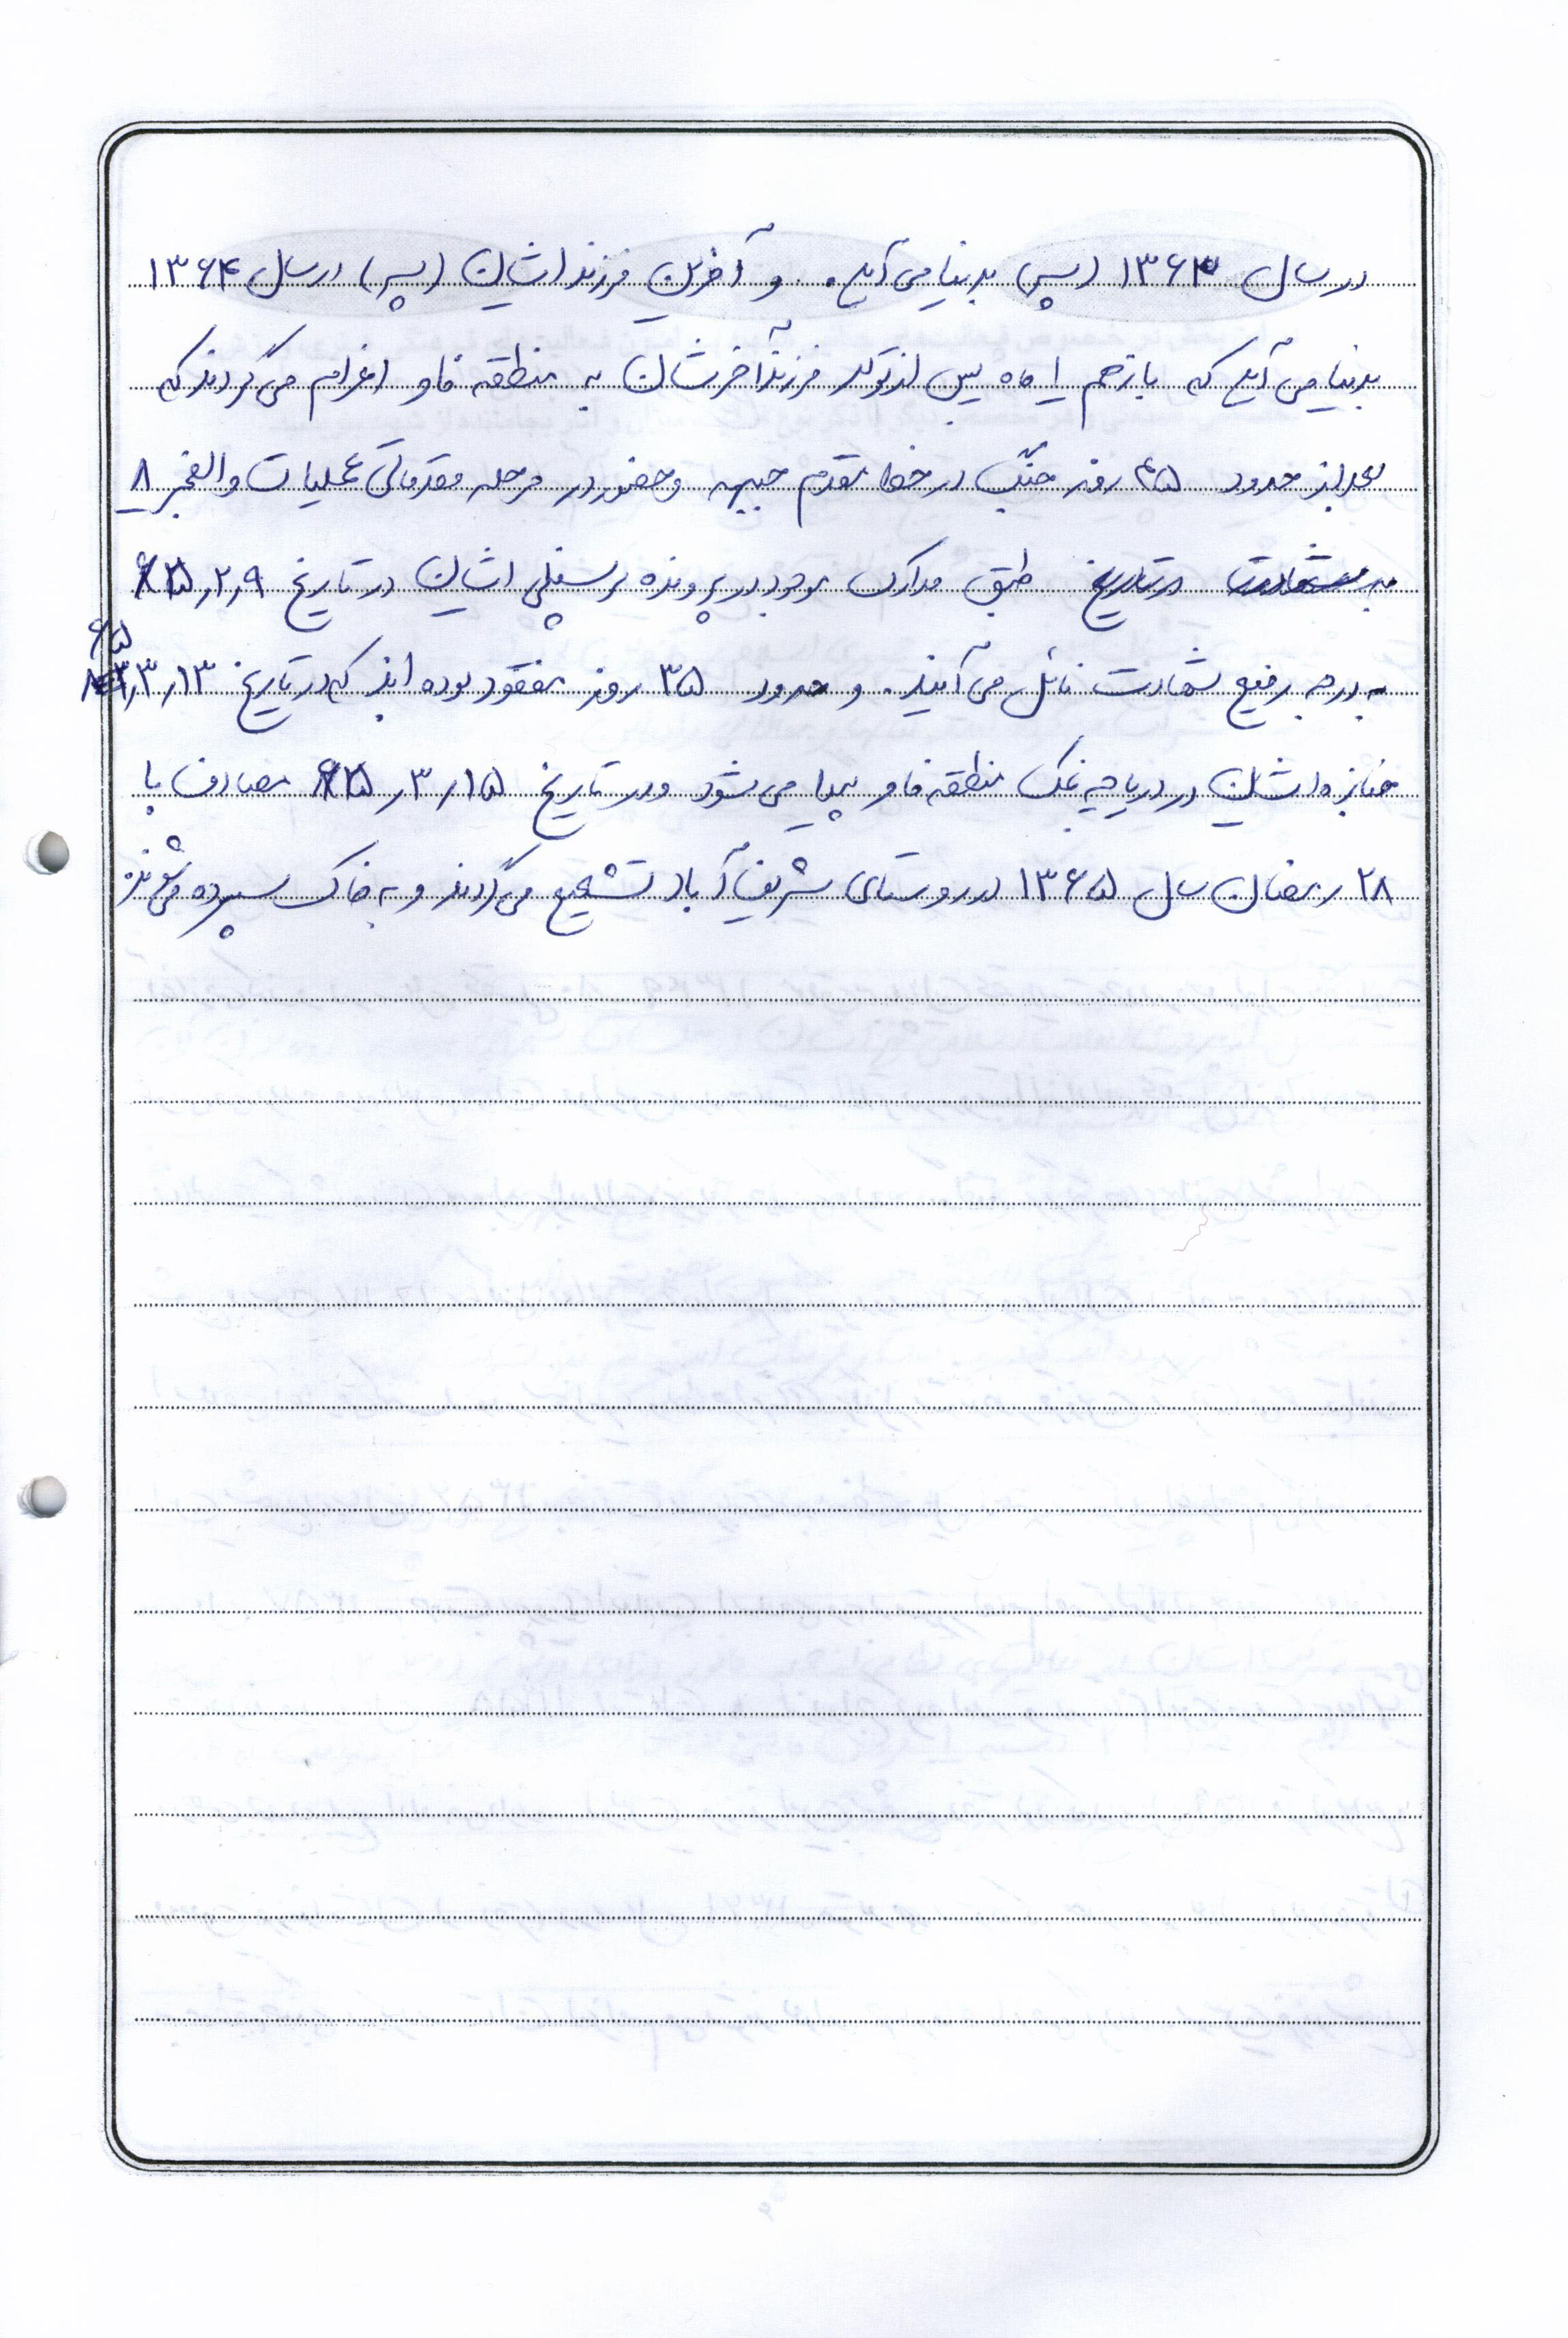 در سال ۱۳۶۳ (پسر) بدنیا می آید. و آخرین فرزند ایشان (پسر) در سال ۱۳۶۴
بدنیا می آید که بازهم ۱ ماه پس از تولد فرزند آخرشان به منطقه فاو اعزام می گردند که
بعد از حدود ۴۵ روز جنگ در خط مقدم جبهه و حضور در مرحله مقدماتی عملیات والفجر ۸
به شهادت در تاریخ طبق مدارک موجود در پرونده پرسنلی ایشان در تاریخ ۶۵٫۲٫۹
به درجه رفیع شهادت نائل می آیند. و حدود ۳۵ روز مفقود بوده اند که در تاریخ ۶۵٫۳٫۱۳
جنازه ایشان در دریاچه نمک منطقه فاو پیدا می شود و در تاریخ ۶۵٫۳٫۱۵ مصادف با
۲۸ رمضان سال ۱۳۶۵ در روستای شریف آباد تشییع می گردند و به خاک سپرده می شوند